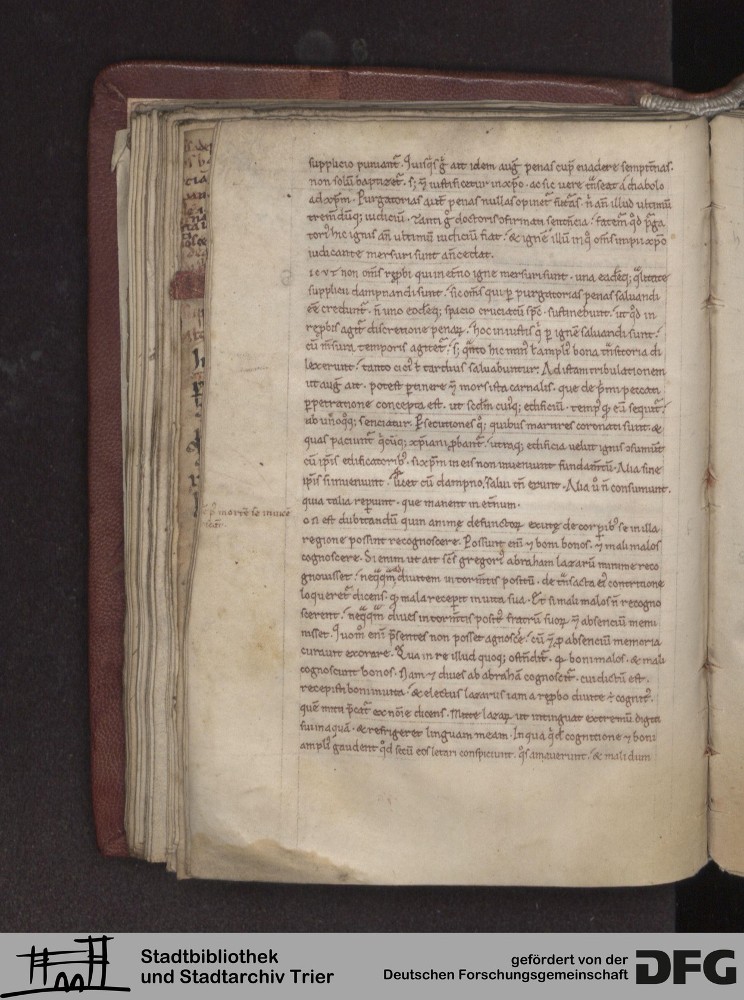 supplicio puniant᷑. Quisq̇s g̊ ait idem aug̅ penas cup̅ euadere sempit̅nas.
non solū baptizet᷑. s; ⁊ iustificetur in xp̅o. ac sic uere t̅nseat a diabolo
ad xp̅m. Purgatorias aut̅ penas nullas opinet᷑ fut̅as. n̅ an̅ illud ultimū
tremdūq; iudiciū. Tanti g̊ doctoris o firmati sent̅ncia. fatem̅ qd̅ p̅ga
tori᷒ hic ignis an̅ ultimū iudiciū fiat. & igne̅ illū in q̊ om̅s impii xp̅o
iudicante mersuri sunt an̅cedat.
icut non om̅s rep̅bi qui in et̅no igne mersuri sunt. una eadēq; q̅litate
supplicii dampnandi sunt. sic om̅s qui p̲ purgatorias penas saluandi
e̅e credunt᷑. n̅ uno eodēq; spacio cruciatū sp̅c᷒ sustinebunt. ut qd̅ in
rep̅bis agit᷑ discretione penaꝝ. hoc in iustis q̇ p̲ igne̅ saluandi sunt.
cū m̅sura temporis agitet᷑. s; q̅nto hic min᷒ ł ampli᷒ bona t̅nsitoria di
lexerunt. tanto cici᷒ ł tardius saluabuntur. Ad istam tribulationem
ut aug̅ ait. potest p̲tinere ⁊ mors ista carnalis. que de p̅mi peccati
p̲petratione concepta est. ut sc̅dm cui᷒q; edificiū. temp᷒ q̊ eū sequit᷑.
ab uno q̊q; senciatur. P̲secutiones q̊q; quibus martires coronati sunt &
quas paciunt᷑ q̇cūq; xp̅iani p̲bant᷑. utraq; edificia uelut ignis o̅sumunt
cū ip̅is edificatorib᷒. si xp̅m in eis non inueniunt fundam̅tū. Alia sine
ip̅is si inueniunt. licet cū dampno, salui tn̅ erunt. Alia u̇ n̅ consumunt.
qua talia rep̲iunt. que manent in et̅num.
p᷒ morte̅ se inuice̅
on est dubitandū quin anime defunctoꝝ exute de corp̲ib᷒ se in illa
regione possint recognoscere. Possunt eni̅ ⁊ boni bonos. ⁊ mali malos
cognoscere. Si enim ut ait sc̅s gregori᷒ abraham lazarū minime reco
gnouisset. neq̅q̅m ad diuitem in torm̅tis positū. de t̅nsacta ei᷒ contritione
loqueret᷑ dicens. qd̅ mala recep̲it in uita sua. Et si mali malos n̅ recogno
scerent. neq̅q̅m diues in torm̅tis posit᷒ fratrū suoꝝ ⁊ absenciū memi
nisset. Quom̊ eni̅ p̅sentes non posset agnosce̅. cū ⁊ p̲ absenciū memoria
curauit exorare. Qua in re illud quoq; ostn̅dit᷑. qd̅ boni malos. & mali
cognoscunt bonos. Nam ⁊ diues ab abrahā cognoscit᷑. cui dictū est.
recepisti bona in uita. & electus lazarus iam a rep̲bo diuite ÷ cognit᷒.
que̅ mitti p̅cat᷑ ex no̅ie dicens. Mitte lazaꝝ ut intinguat extremū digiti
sui in aquā. & refrigeret linguam meam. In qua q̇d̅ cognitione ⁊ boni
ampli᷒ gaudent qd̅ secū eos letari conspiciunt. q̇s amauerunt. & mali dum
Stadtbibliothek
und Stadtarchiv Trier
gefördert von der
Deutschen Forschungsgemeinschaft
DFG